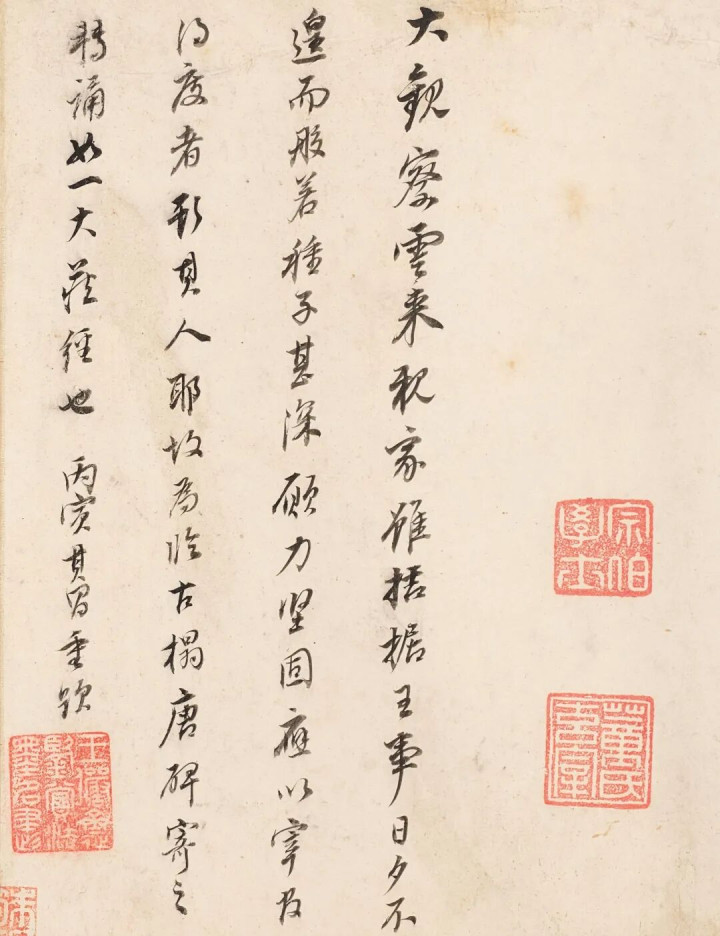 大觀察雲來親家雖拮据王事日夕不
遑而般若種子甚深願力堅固應以宰官
得度者其人耶故為臨古榻唐碑寄之
轉誦如一大藏經也 丙寅其昌重題
宗伯學士
董氏玄宰